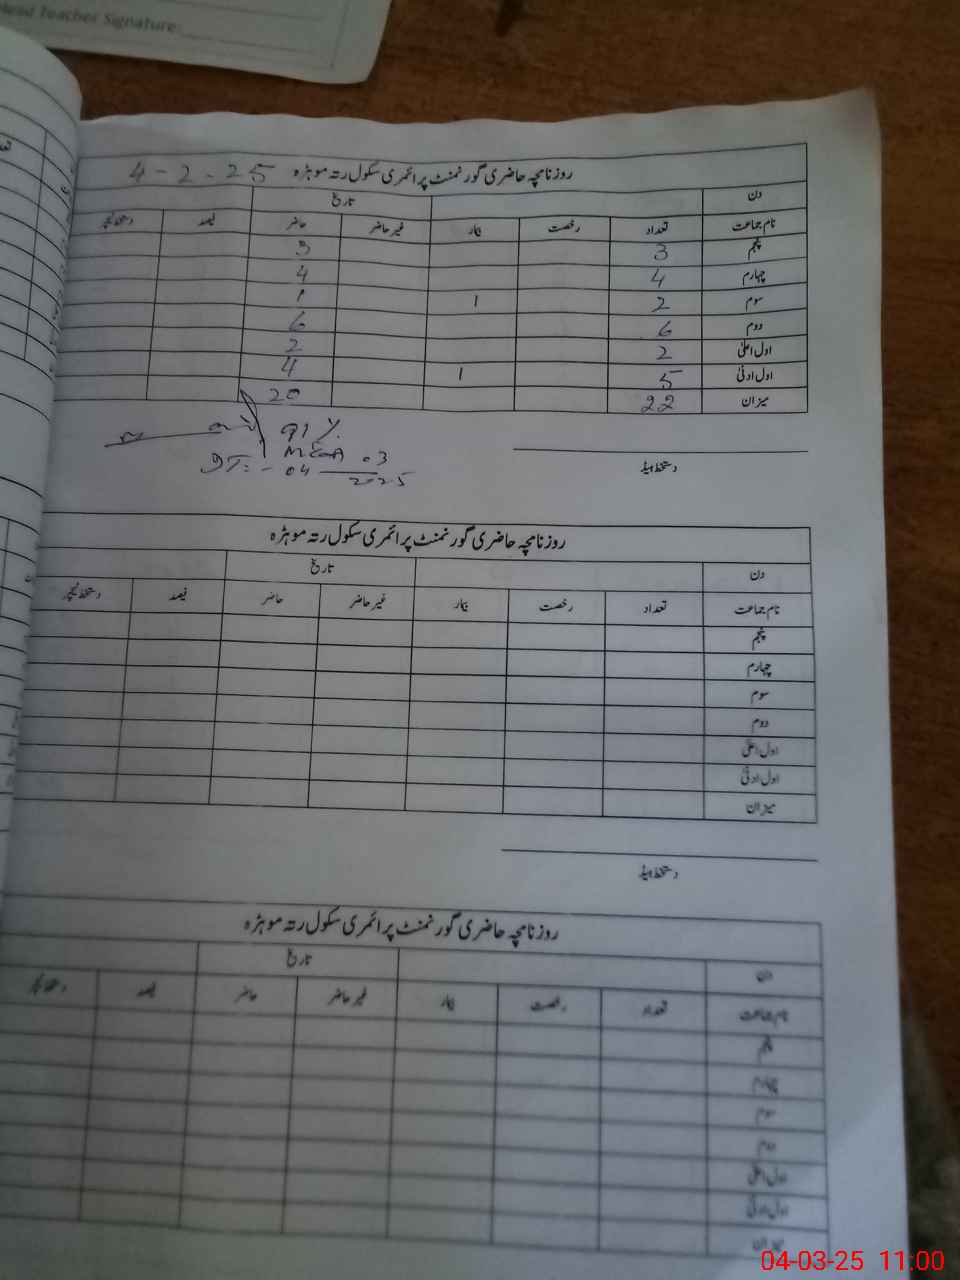 Head Teacher Signature:
روزنامچہ حاضری گورنمنٹ پرائمری سکول رتہ موہڑہ 4-2-25
دن تاریخ
نام جماعت تعداد رخصت بیمار غیر حاضر حاضر فیصد دستخط ٹیچر
پنجم 3 3
چہارم 4 4
سوم 2 1 1
دوم 6 6
اول اعلیٰ 2 2
اول ادنیٰ 5 1 4
میزان 22 20
91 %
MEA
DT:- 04 03
2025
دستخط ہیڈ
روزنامچہ حاضری گورنمنٹ پرائمری سکول رتہ موہڑہ
دن تاریخ
نام جماعت تعداد رخصت بیمار غیر حاضر حاضر فیصد دستخط ٹیچر
پنجم
چہارم
سوم
دوم
اول اعلیٰ
اول ادنیٰ
میزان
دستخط ہیڈ
روزنامچہ حاضری گورنمنٹ پرائمری سکول رتہ موہڑہ
دن تاریخ
نام جماعت تعداد رخصت بیمار غیر حاضر حاضر فیصد دستخط ٹیچر
پنجم
چہارم
سوم
دوم
اول اعلیٰ
اول ادنیٰ
میزان
04-03-25 11:00